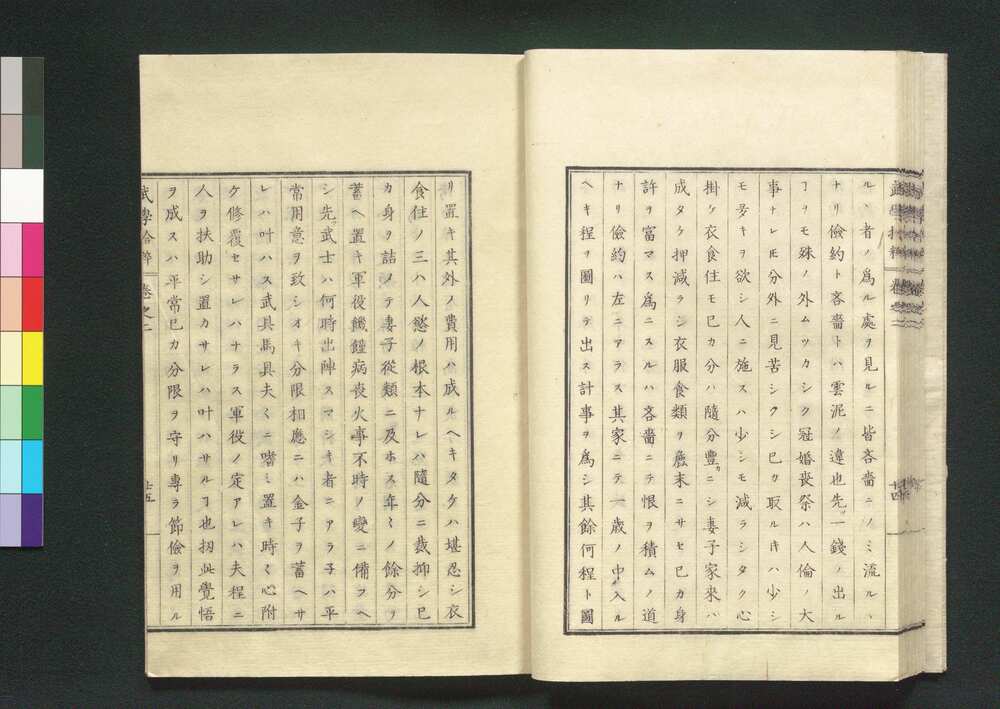 ル丶者ノ爲ル處ヲ見ルニ皆吝嗇ニノミ流ルヽ
ナリ儉約ト吝嗇トハ雲泥ノ違也先一錢ノ出ル
ヿヲモ殊ノ外ムツカシク冠婚喪祭ハ人倫ノ大
事ナレ𪜈分外ニ見苦シクシ已カ取ルキハ少シ
モ多キヲ欲シ人ニ施スハ少シモ減ラシタク心
掛ケ衣食住モ已カ分ハ隨分豐カニシ妻子家來ハ
成タケ押減ラシ衣服食類ヲ麁末ニサセ已カ身
許ヲ富マス爲ニスルハ吝嗇ニテ恨ヲ積ムノ道
ナリ儉約ハ左ニアラス其家ニテ一歳ノ中入ル
ヘキ程ヲ圖リテ出ス計事ヲ爲シ其餘何程ト圖
リ置キ其外ノ費用ハ成ルヘキタケハ堪忍シ衣
食住ノ三ハ人慾ノ根本ナレハ隨分ニ裁抑シ已
カ身ヲ詰メテ妻子從類ニ及ホス年〻ノ餘分ヲ
蓄ヘ置キ軍役饑饉病喪火事不時ノ變ニ備フヘ
シ先武士ハ何時出陣スマシキ者ニアラ子ハ平
常用意ヲ致シオキ分限相應ニハ金子ヲ蓄ヘサ
レハ叶ハス武具馬具夫〻ニ嗜ミ置キ時〻心附
ケ修覆セサレハナラス軍役ノ定アレハ夫程ニ
人ヲ扶助シ置カサレハ叶ハサルヿ也扨此覺悟
ヲ成スハ平常已カ分限ヲ守リ專ラ節儉ヲ用ル
武學拾粹 卷之二 廿五